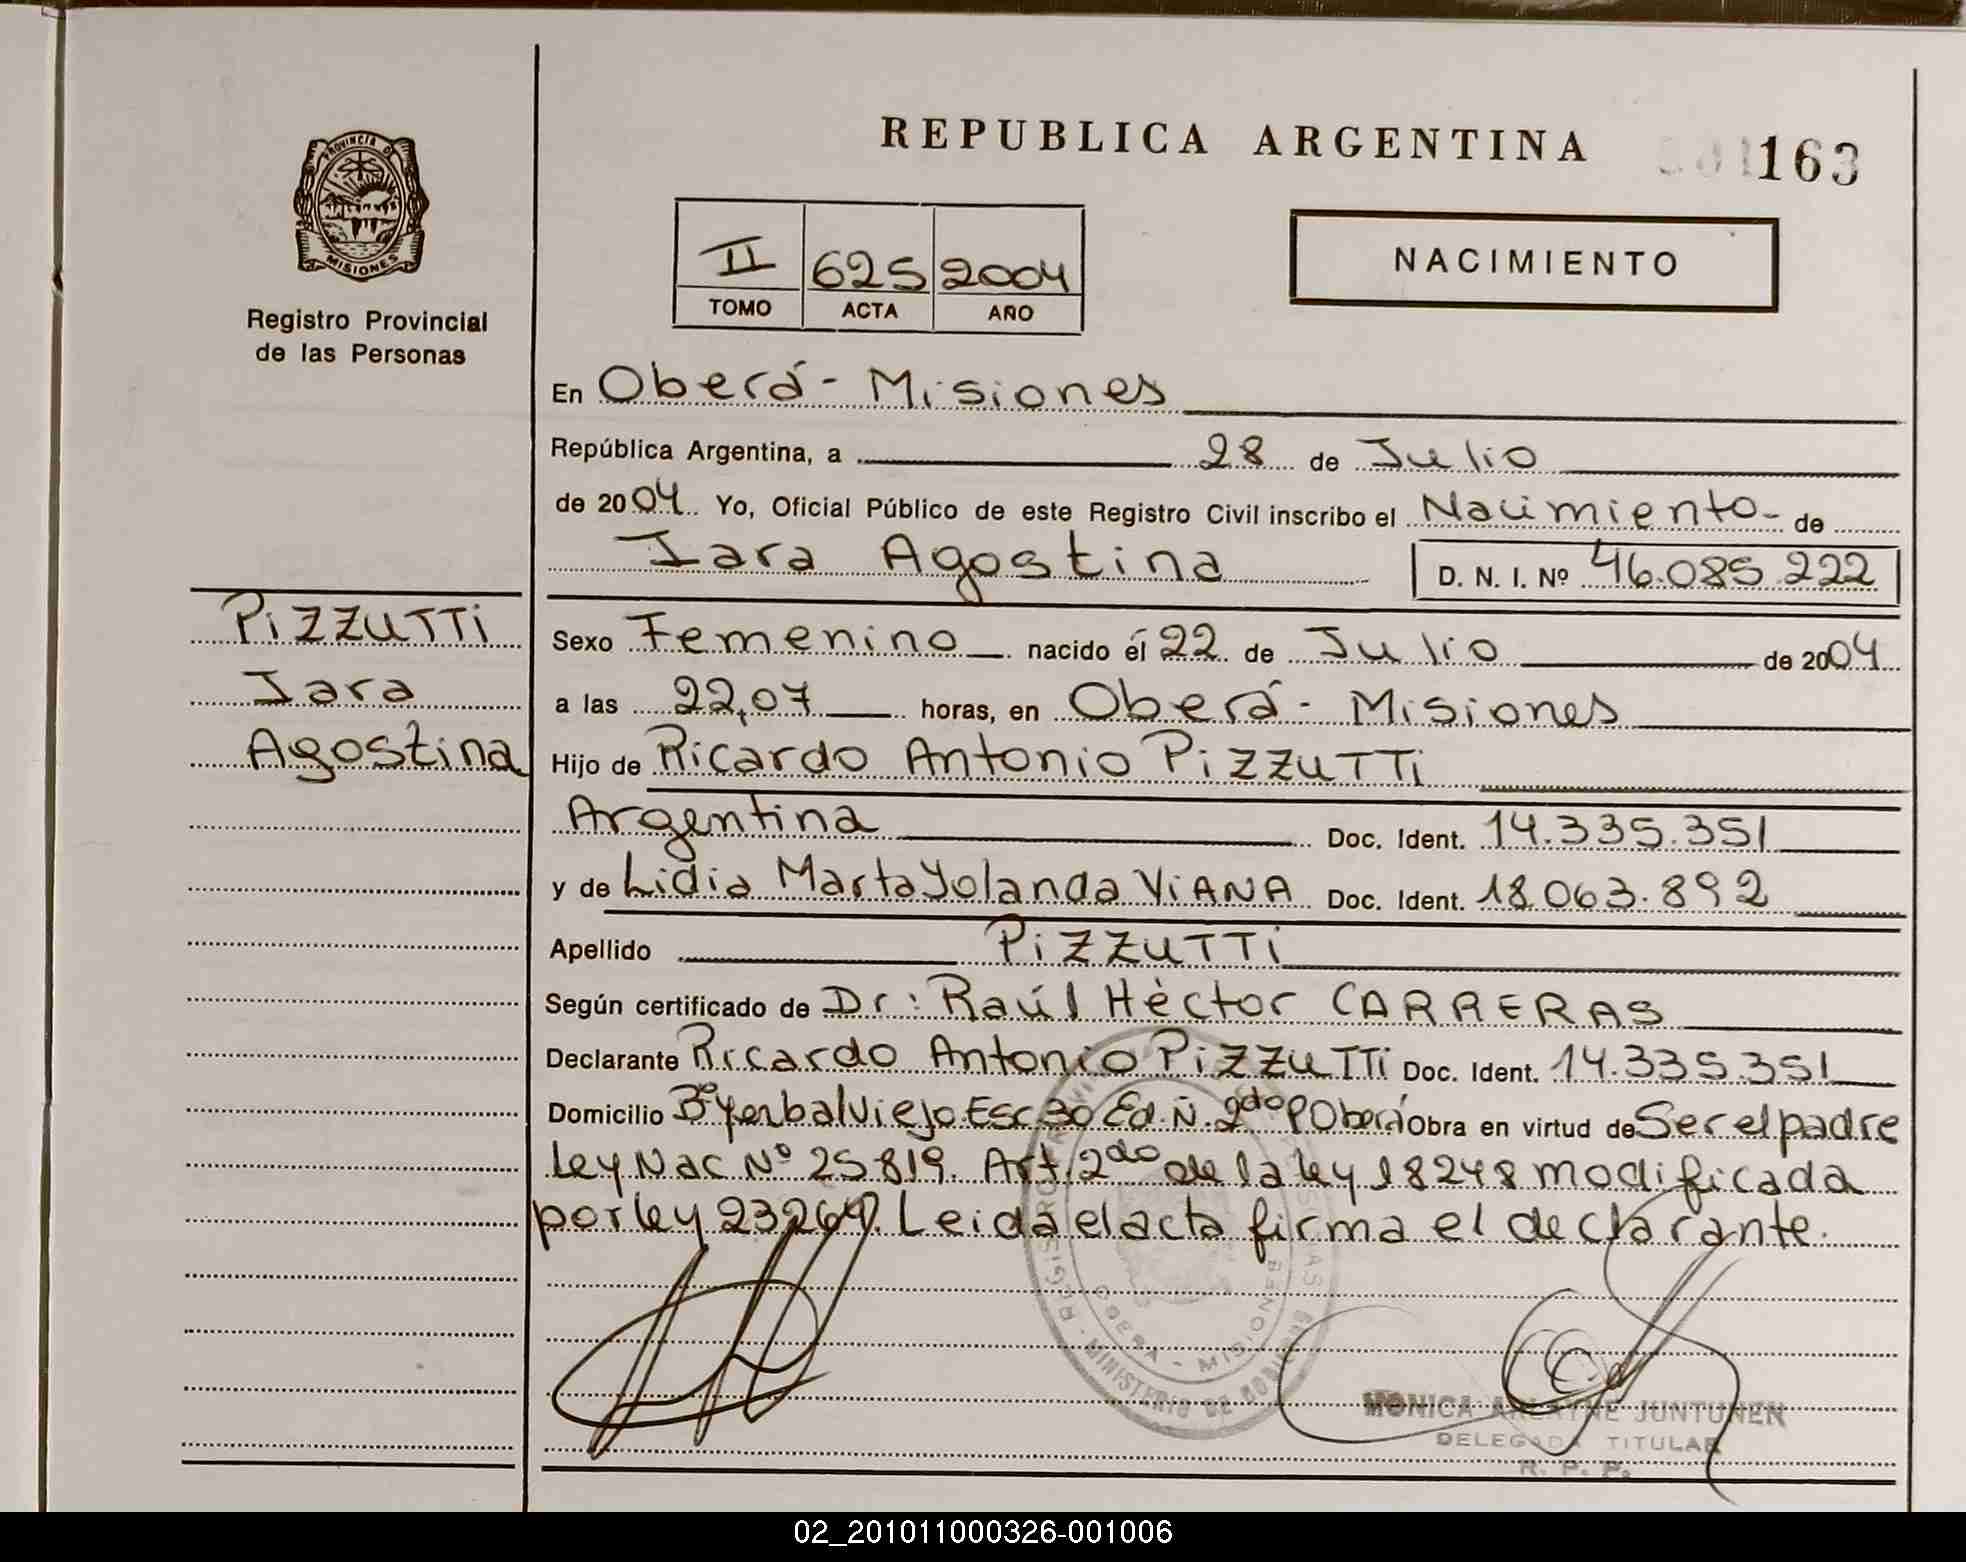 REPUBLICA ARGENTINA
163
PROVINCIA DE
MISIONES
Registro Provincial
de las Personas
II 625 2004
TOMO ACTA AÑO
NACIMIENTO
En Oberá - Misiones
República Argentina, a 28 de Julio
de 2004 Yo, Oficial Público de este Registro Civil inscribo el Nacimiento - de
Iara Agostina D. N. I. Nº 46.085.222
PIZZUTTI
Iara
Agostina
Sexo Femenino nacido él 22 de Julio de 2004
a las 22,07 horas, en Oberá - Misiones
Hijo de Ricardo Antonio PIZZUTTI
Argentina Doc. Ident. 14.335.351
y de Lidia Marta Yolanda VIANA Doc. Ident. 18.063.892
Apellido PIZZUTTI
Según certificado de Dr: Raúl Héctor CARRERAS
Declarante Ricardo Antonio PIZZUTTI Doc. Ident. 14.335.351
Domicilio Bº Yerbal Viejo Esc 30 Ed. Ñ. 2do P Oberá Obra en virtud de Ser el padre
Ley Nac Nº 25.819. Art. 2do de la ley 18248 modificada
por ley 23264. Leida el acta firma el declarante.
OBERA - MISIONES
MINISTERIO DE GOBIERNO
MONICA ARLAYNE JUNTUNEN
DELEGADA TITULAR
R. P. P.
02_201011000326-001006